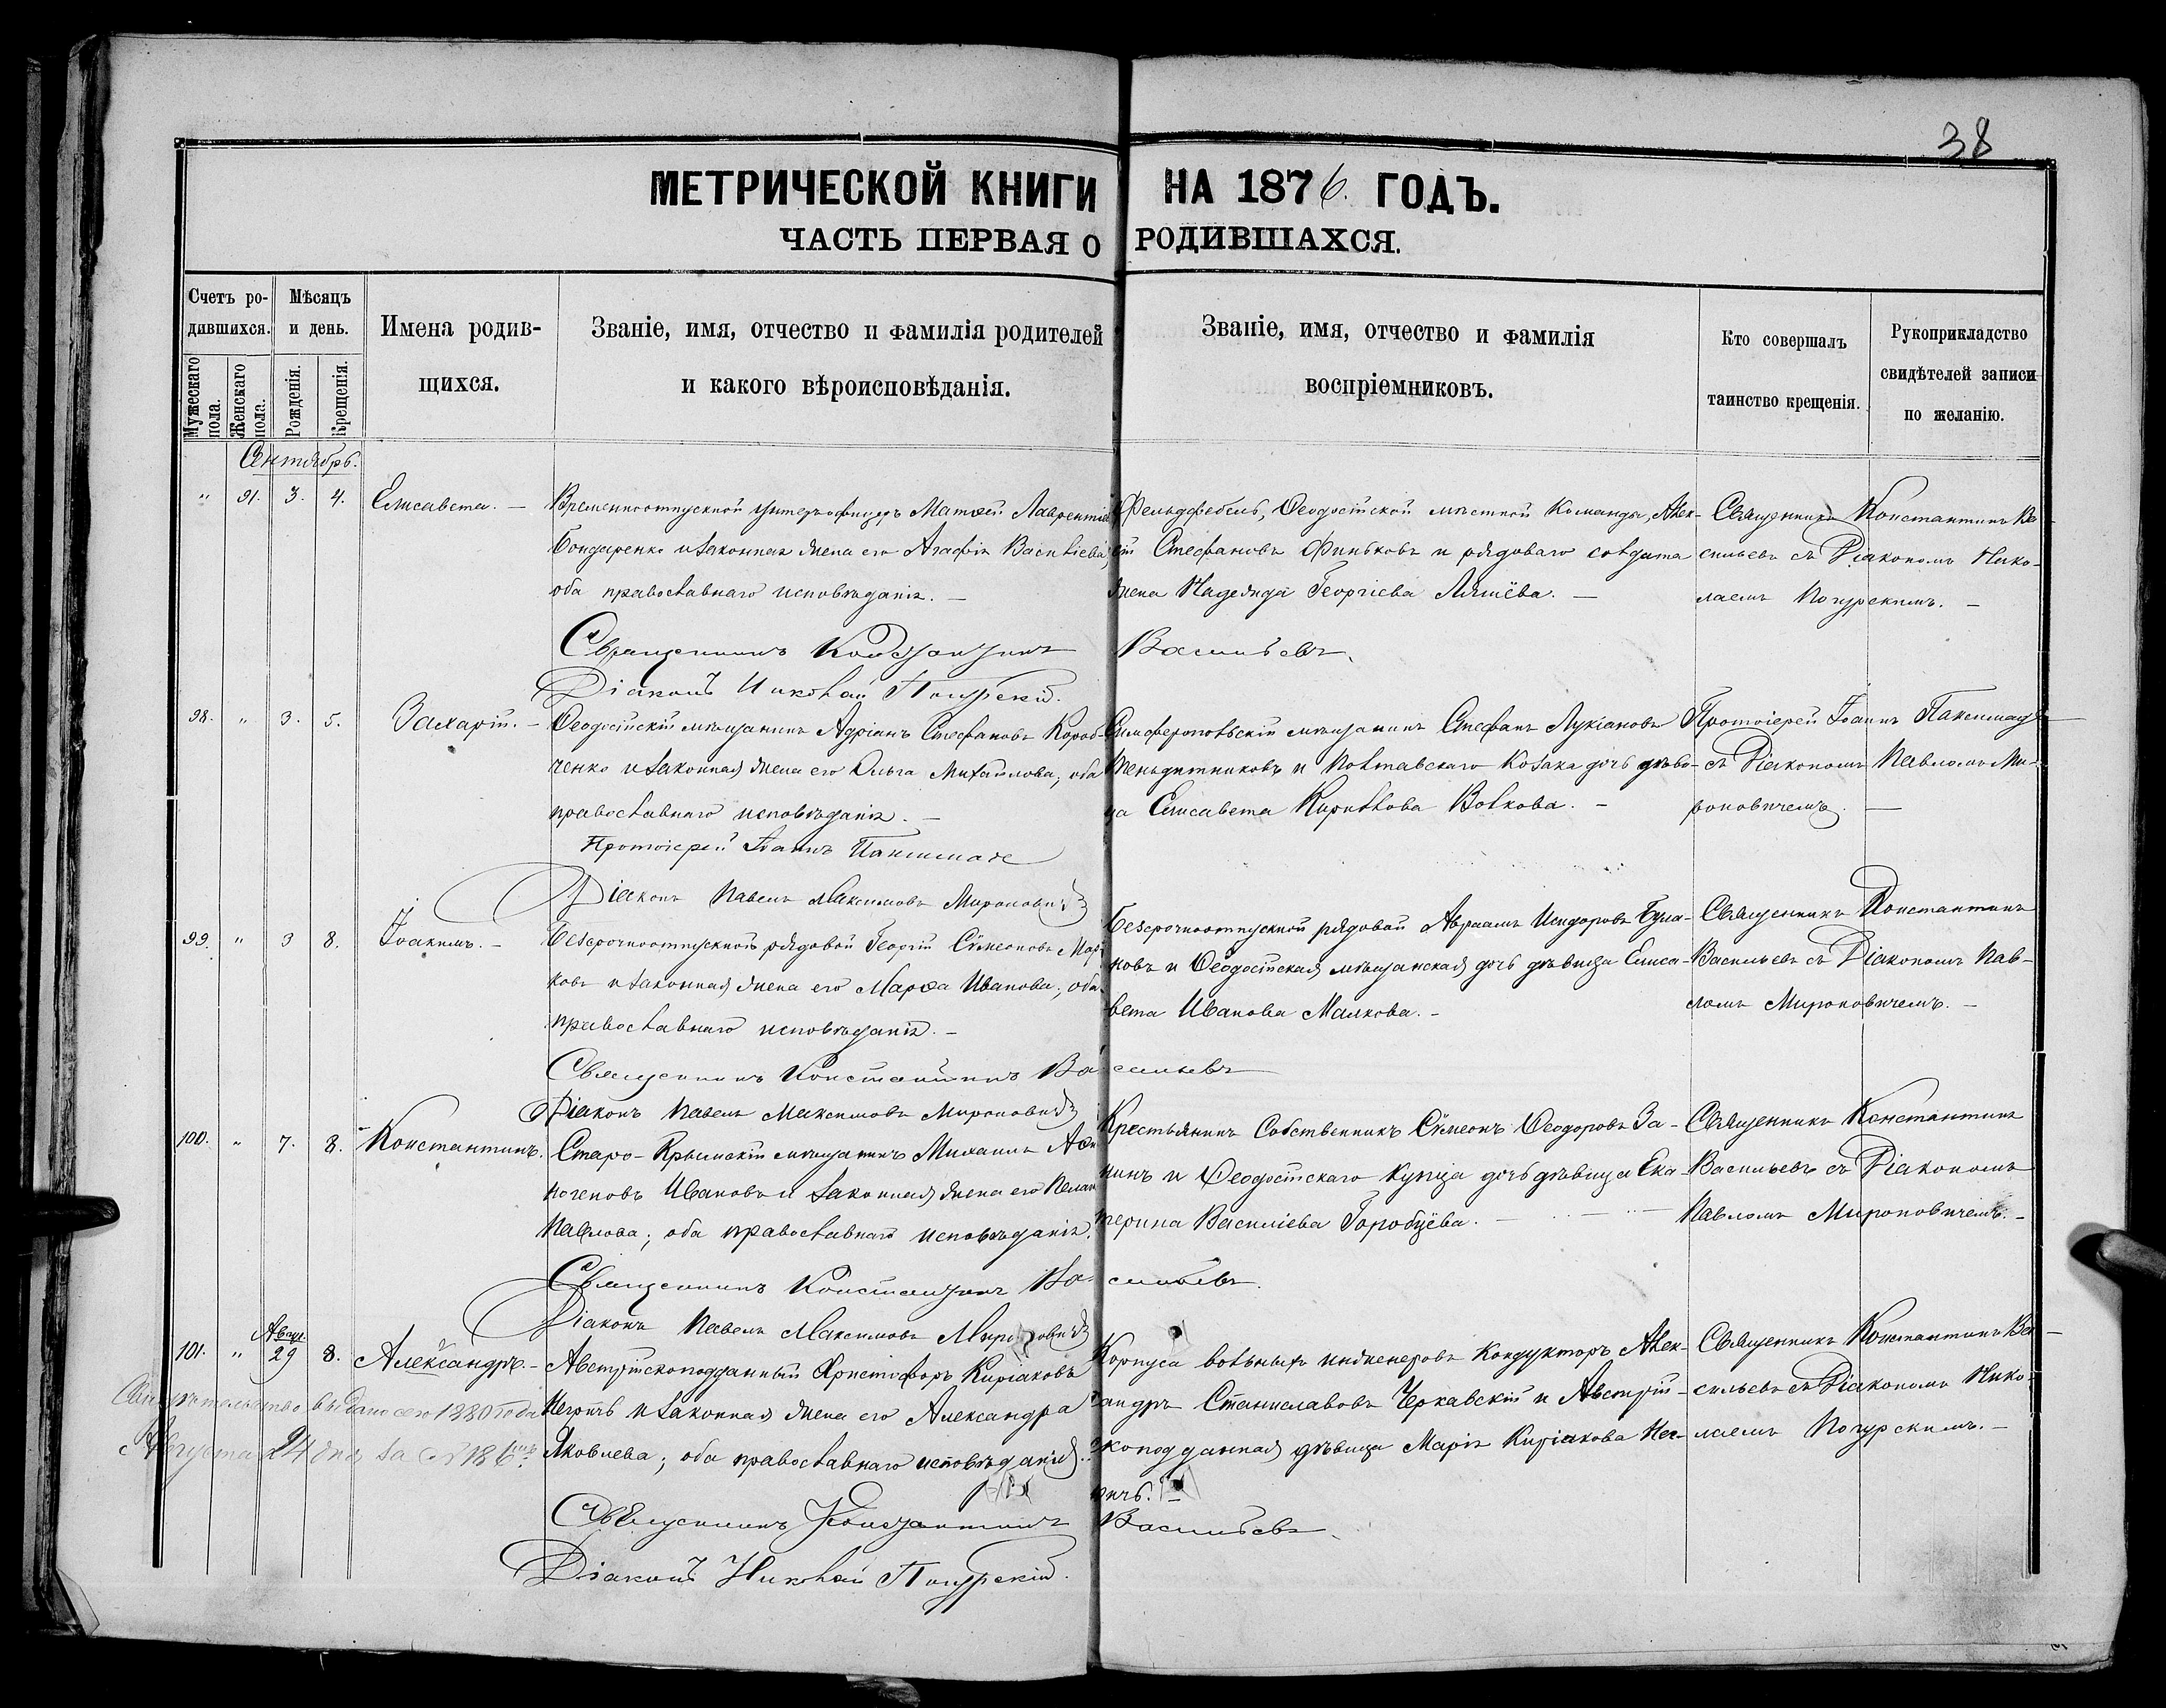 38
МЕТРИЧЕСКОЙ КНИГИ НА 1876. ГОДЪ.
ЧАСТЬ ПЕРВАЯ О РОДИВШАХСЯ.
Счетъ ро-
дившихся.
Мужескаго пола.
Женскаго пола.
Мѣсяцъ
и день.
Рожденія.
Крещенія.
Имена родив-
щихся.
Званіе, имя, отчество и фамилія родителей
и какого вѣроисповѣданія.
Званіе, имя, отчество и фамилія
воспріемниковъ.
Кто совершалъ
таинство крещенія.
Рукоприкладство
свидѣтелей записи
по желанію.
Сентябрь.
" 91. 3. 4. Елисавета. –
Временноотпускной унтеръ-офицеръ Матѳей Лаврентіевъ
Бондаренко и законная жена его Агафія Василіева,
оба православнаго исповѣданія. –
Фельдфебель, Ѳеодосійской мѣстной Команды, Алек-
сій Стефановъ Финьковъ и рядоваго солдата
жена Надежда Георгіева Ляшёва. –
Священникъ Константинъ Ва-
сильевъ съ Діакономъ Нико-
лаемъ Погурскимъ. –
Священникъ Константинъ Васильевъ.
Діаконъ Николай Погурскій.
98. " 3. 5. Захарій. –
Ѳеодосійскій мѣщанинъ Адріанъ Стефановъ Короб-
ченко и законная жена его Ольга Михаилова; оба
православнаго исповѣданія. –
Симферопольскій мѣщанинъ Стефанъ Лукіановъ
и Полтавскаго Козака дочь дѣви-
ца Елисавета Кириллова Волкова. –
Протоіерей Іоаннъ Паксимаде
съ Діакономъ Павломъ Ми-
роновичемъ. –
Протоіерей Іоаннъ Паксимаде
Діаконъ Павелъ Максимовъ Мироновичъ
99. " 3 8. Іоакимъ. –
Безсрочноотпускной рядовой Георгій Сѵмеоновъ Мар-
ковъ и законная жена его Марѳа Иванова; оба
православнаго исповѣданія. –
Безсрочноотпускной рядовой Авраамъ Исидоровъ Була-
ковъ и Ѳеодосійская мѣщанская дочь дѣвица Елиса-
вета Иванова Малкова. –
Священникъ Константинъ
Васильевъ съ Діакономъ Пав-
ломъ Мироновичемъ. –
Священникъ Константинъ Васильевъ
Діаконъ Павелъ Максимовъ Мироновичъ
100. " 7. 8. Константинъ.
Старо-Крымскій мѣщанинъ Михаилъ
Ивановъ и законная жена его
Павлова; оба православнаго исповѣданія.
Крестьянинъ Собственникъ Сѵмеонъ Ѳеодоровъ За-
нинъ и Ѳеодосійскаго купца дочь дѣвица Ека-
терина Василіева Горобцёва. –
Священникъ Константинъ
Васильевъ съ Діакономъ
Павломъ Мироновичемъ. –
Священникъ Константинъ Васильевъ.
Діаконъ Павелъ Максимовъ Мироновичъ
Авгу.
101. " 29 8. Александръ. –
Австрійскоподданный Христофоръ Киріаковъ
Негричъ и законная жена его Александра
Яковлева; оба православнаго исповѣданія.
Корпуса военныхъ инженеровъ Кондукторъ Алек-
сандръ Станиславовъ Черкавскій и Австрій-
скоподданная дѣвица Марія Киріакова Нег-
ричъ. –
Священникъ Константинъ Ва-
сильевъ съ Діакономъ Нико-
лаемъ Погурскимъ. –
Свидѣтельство выдано сего 1880 года
Августа 24 дня за № 186
Священникъ Константинъ Васильевъ.
Діаконъ Николай Погурскій.